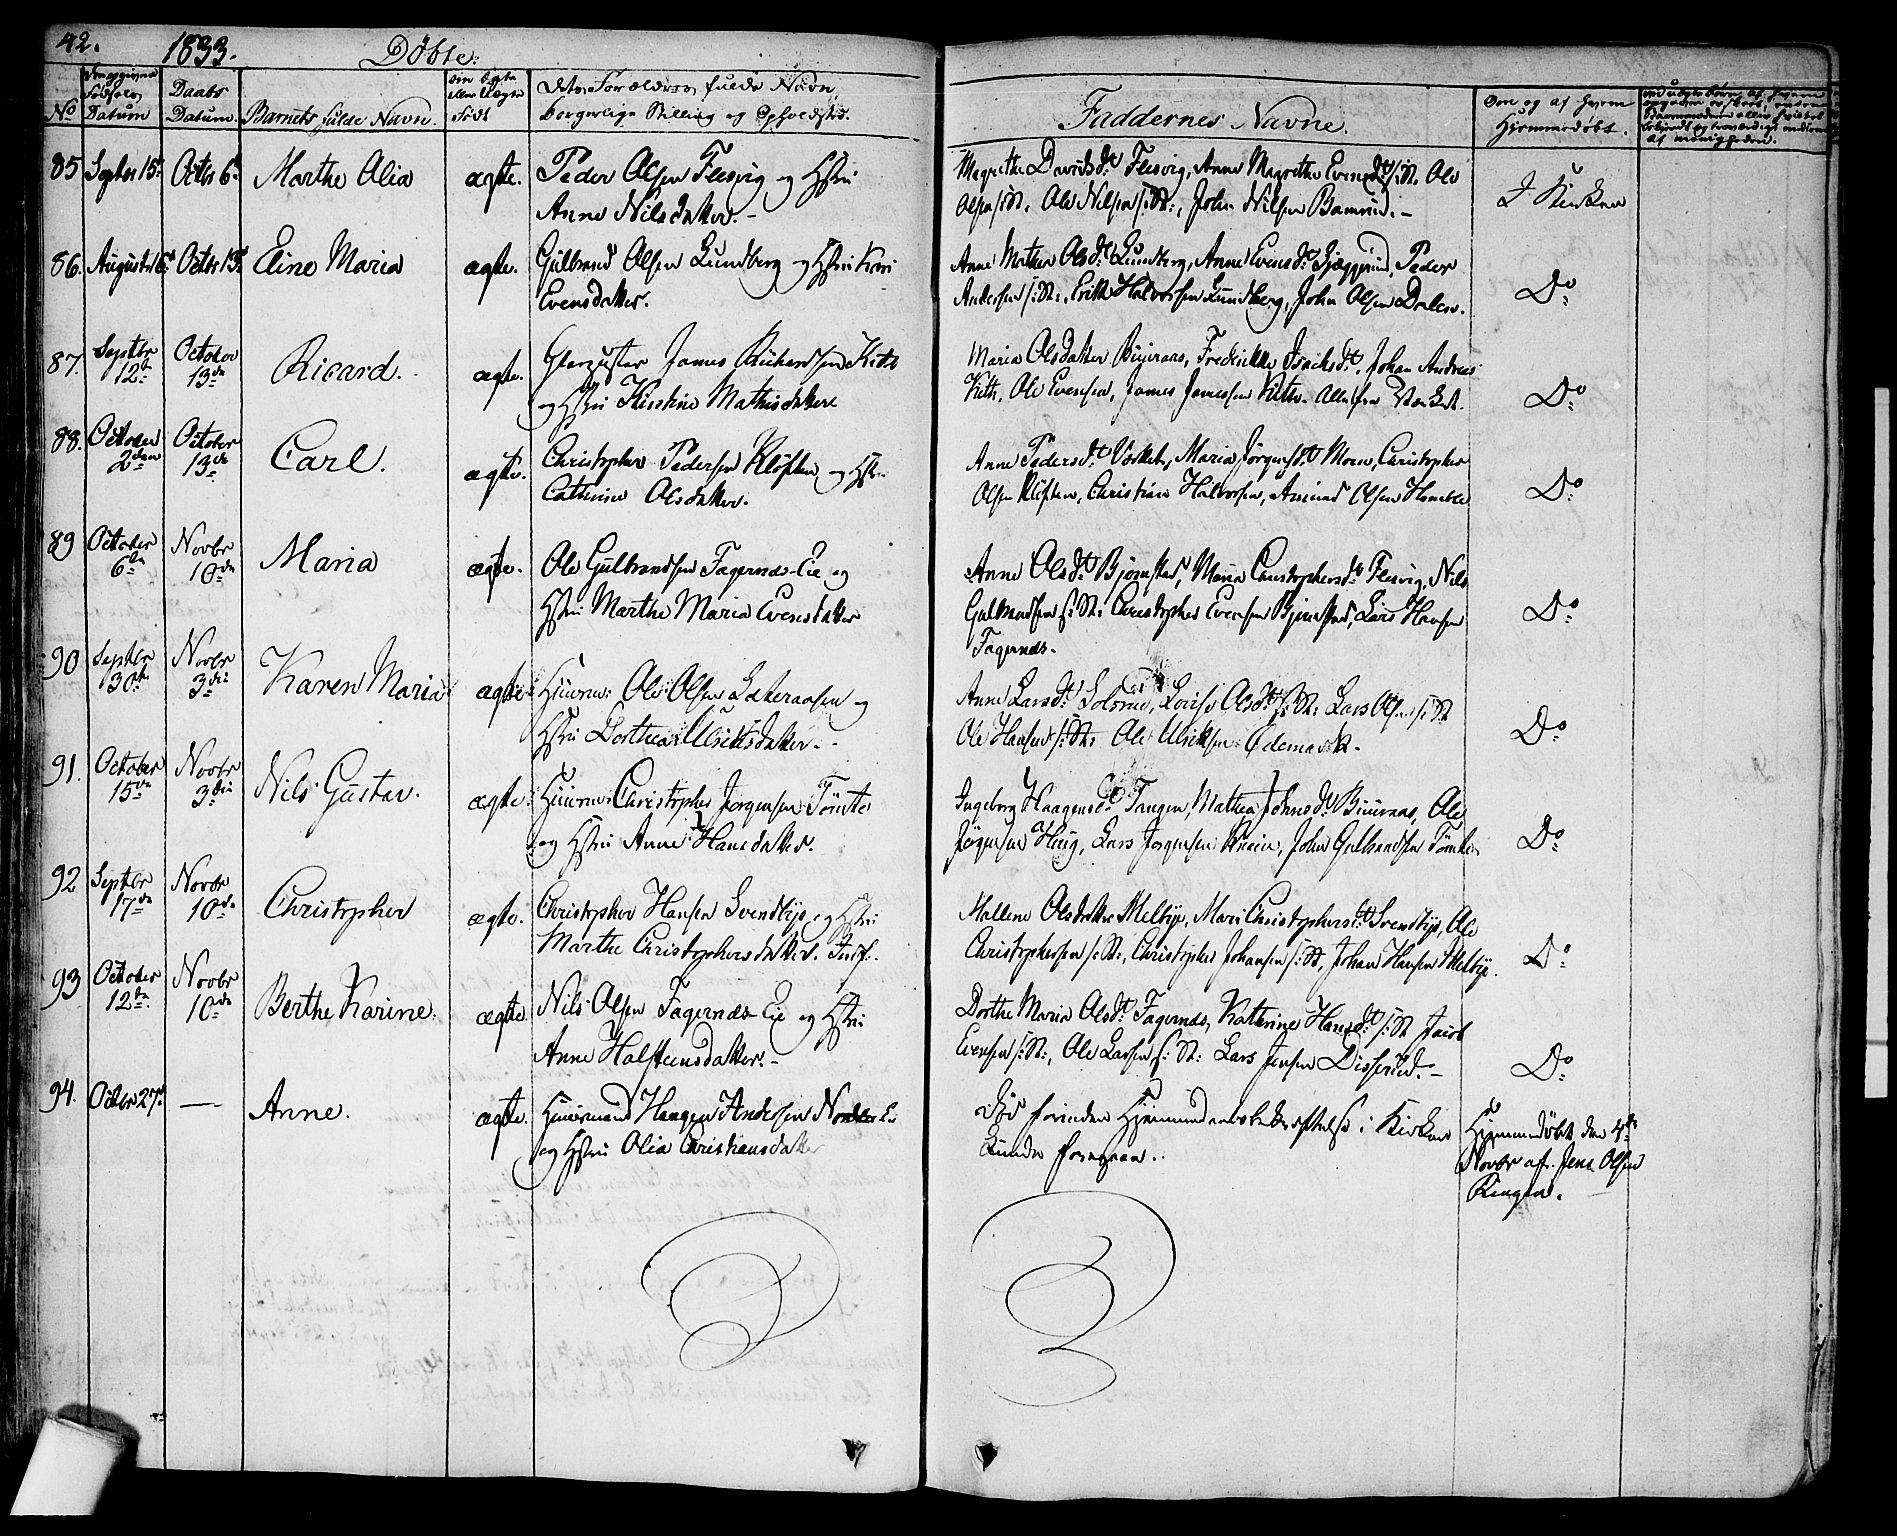 42. 1833. Døbte.
No
Fødsels Datum
Daabs Datum.
Barnets fulde Navn.
ægte eller uægte Født
Forældres fulde Navn,
borgerlige Stilling og Opholdsted.
Faddernes Navne.
Om og af hvem
Hjemmedøbt.
85 Septbr 15de Octbr 6te Marthe Olia ægte. Peder Olsen Flesvig og Hstru
Anne Nilsdatter.-
Magrethe Davidsdt Flesvig, Anne Magrethe Evensdt s: St. Ole
Olsen s: St. Ole Nilsen s: St:, John Nilsen
I Kirken
86. August 16d Octbr 13d Eline Maria ægte. Gulbrand Olsen Lundberg og Hstru Kari
Evensdatter.
Anne Mathea Olsdt Lundberg, Anne Evensdt Peder
Andersen s: St:, Erik Halvorsen Lundberg, John Olsen
Do
87. Septbr 12te October 13de Ricard. ægte. James Richardsen Kith
og Hstru Kirstine Mathisdatter
Maria Olsdatter Fredrikke Isachsdt, Johan Andreas
Kith, Ole Evensen, James Jamessen Kith. Alle fra Værket.
Do
88. October 2den October 13de Carl. ægte. Christopher Pedersen Kløften og Hstr.
Cathrine Olsdatter.
Anne Pedersdt Værket, Maria Jørgensdt Moen, Christopher
Olsen Kløften, Christian Halvorsen, Amund Olsen
Do
89 October 6te Novbr 10de Maria ægte. Ole Gulbrandsen Fagernæs-Eie og
Hstru Marthe Maria Evensdatter
Anne Olsdt Bjørnstad, Maria Christophersdt Flesvig, Nils
Gulbrandsen s: St: Christopher Evensen Bjørnstad, Lars Hansen
Fagernæs.
Do
90 Septbr 30te Novbr 3die Karen Maria ægte Huusm: Ole Olsen og
Hstru Dorthea Ulriksdatter.-
Anne Larsdt Solerud, Lovise Olsdt s: St: Lars Olsen s: St
Ole Hansen s: St: Ole Ulriksen Ødemark.
Do
91. October 15de Novbr 3die Nils Gustav. ægte. Huusm: Christopher Jørgensen Tømte
og Hstru Anne Hansdatter.
Ingeborg Haagensdt Tangen, Mathea Johnsdt Ole
Jørgensen Haug, Lars Jørgensen John Gulbrandsen Tømte.
Do
92 Septbr 17de Novbr 10de Christopher ægte. Christopher Hansen Svendbye og Hstru
Marthe Christophersdatter. Inds:
Mallene Olsdatter Melbye, Mari Christophersdt Svendbye, Ole
Christophersen s: St:, Christopher Johansen s: St, Johan Hansen Melbye.
Do
93 October 12te Novbr 10de Berthe Karine. ægte. Nils Olsen Fagernæs-Eie og Hstru
Anne Halsteensdatter.-
Dorthe Maria Olsdt Fagernæs, Kathrine Hansdt s: St Jacob
Evensen s: St:, Ole Larsen s: St: Lars Jensen Disserud.-
Do
94. Octbr 27d — Anne. ægte. Huusmand Haagen Andersen Nordbye Eie
og Hstru Olia Christiansdatter
Død forinden Hjemmedaabsbekræftelse i Kirken
kunde foregaae.
Hjemmedøbt den 4de
Novbr af Jens Olsen
Ringen.